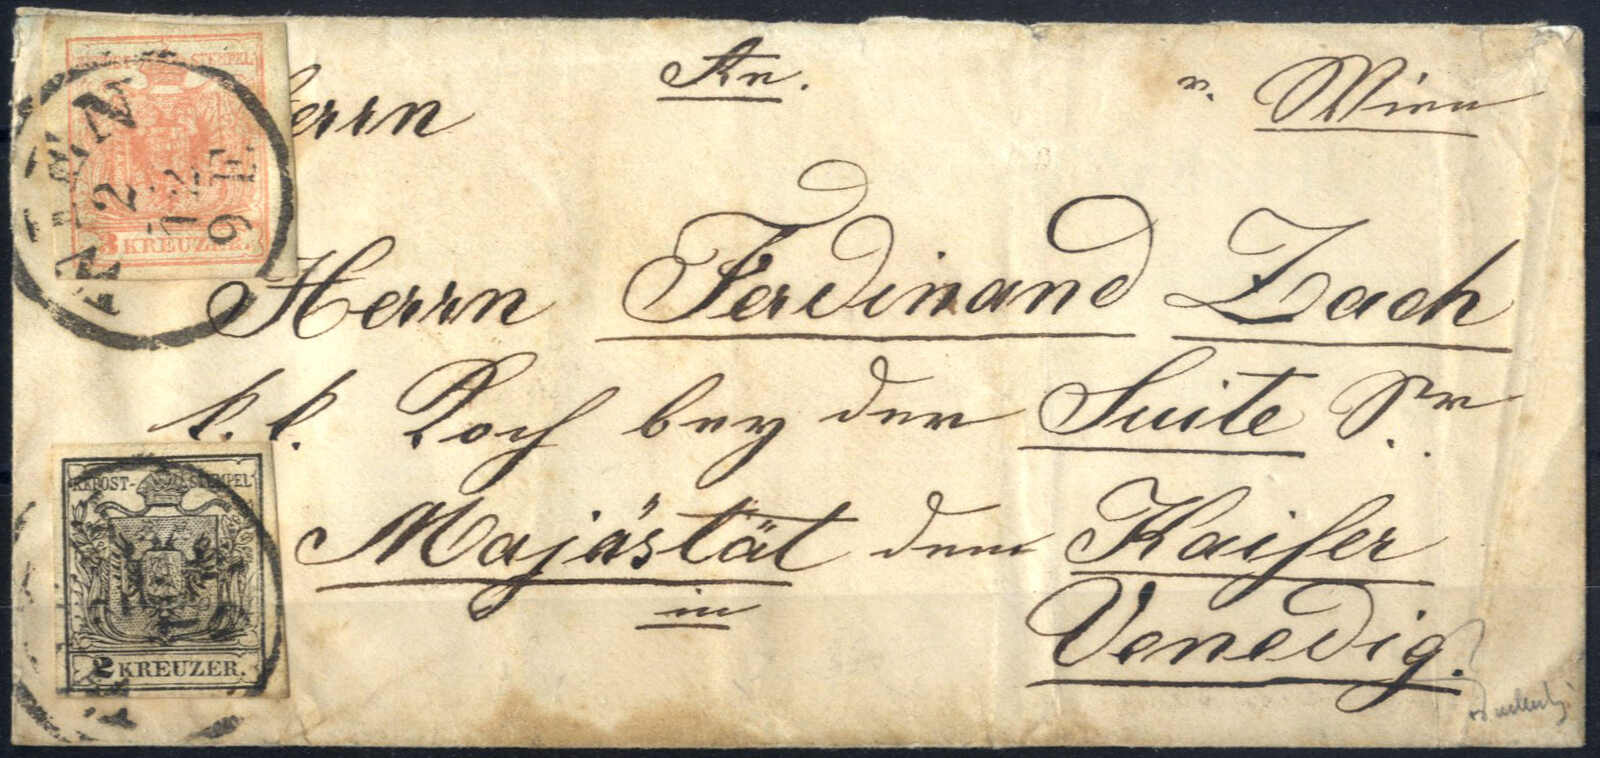 KKPOST-STEMPEL
3 KREUZER.
WIEN
2
12
9 F.
Herrn An. v. Wien
Herrn Ferdinand Zach
k. k. Koch bey der Suite Sr
Majästät dem Kaiser
in
Venedig.
KKPOST-STEMPEL
2 KREUZER.